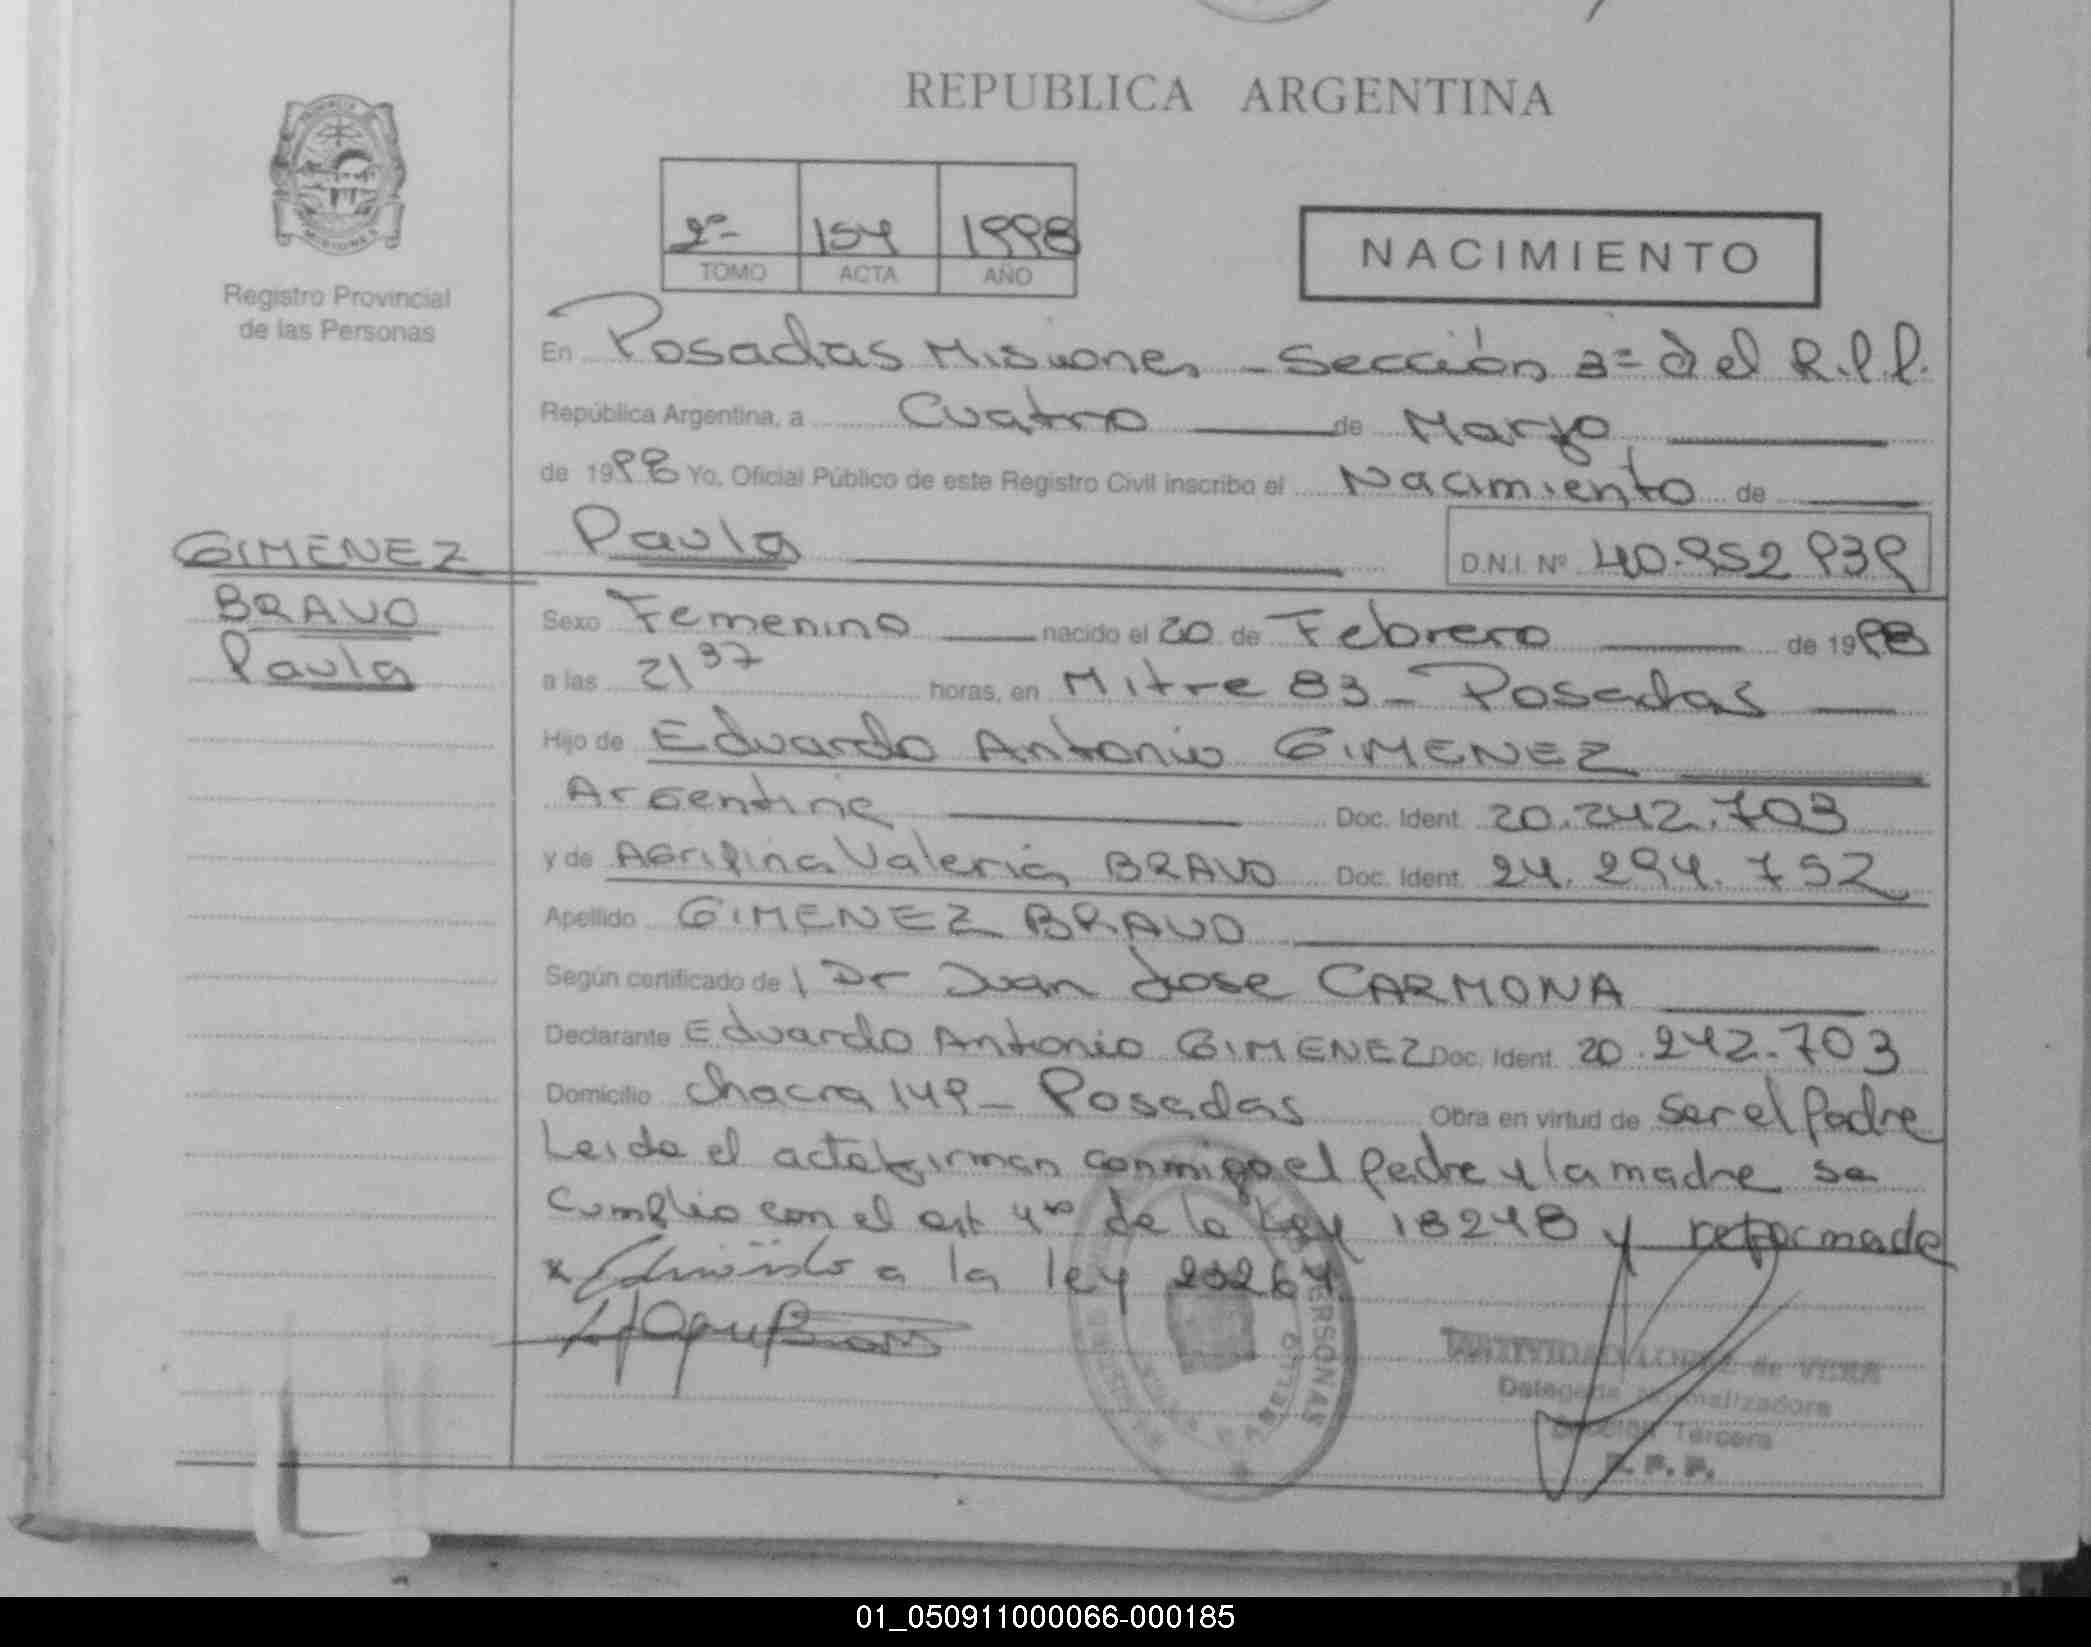 REPUBLICA ARGENTINA
Registro Provincial
de las Personas
2º 154 1998
TOMO ACTA AÑO
NACIMIENTO
En Posadas Misiones - Sección 3º del R.P.P.
República Argentina, a Cuatro de Marzo
de 1998 Yo, Oficial Público de este Registro Civil inscribo el Nacimiento de
GIMENEZ
BRAVO
Paula
Paula D.N.I. Nº 40.952 939
Sexo Femenino nacido el 20 de Febrero de 1998
a las 21 37 horas, en Mitre 83 - Posadas
Hijo de Eduardo Antonio GIMENEZ
Argentina Doc. Ident. 20.242.703
y de Agripina Valeria BRAVO Doc. Ident. 24.294.752
Apellido GIMENEZ BRAVO
Según certificado de l Dr Juan Jose CARMONA
Declarante Eduardo Antonio GIMENEZ Doc. Ident. 20.242.703
Domicilio Chacra 149 - Posadas Obra en virtud de ser el Padre
Leida el acta firman conmigo el padre y la madre se
cumplio con el art 4to de la Ley 18248 y reformada
a la ley 20264
PERSONAS
de VERA
Sección Tercera
R. P. P.
01_050911000066-000185